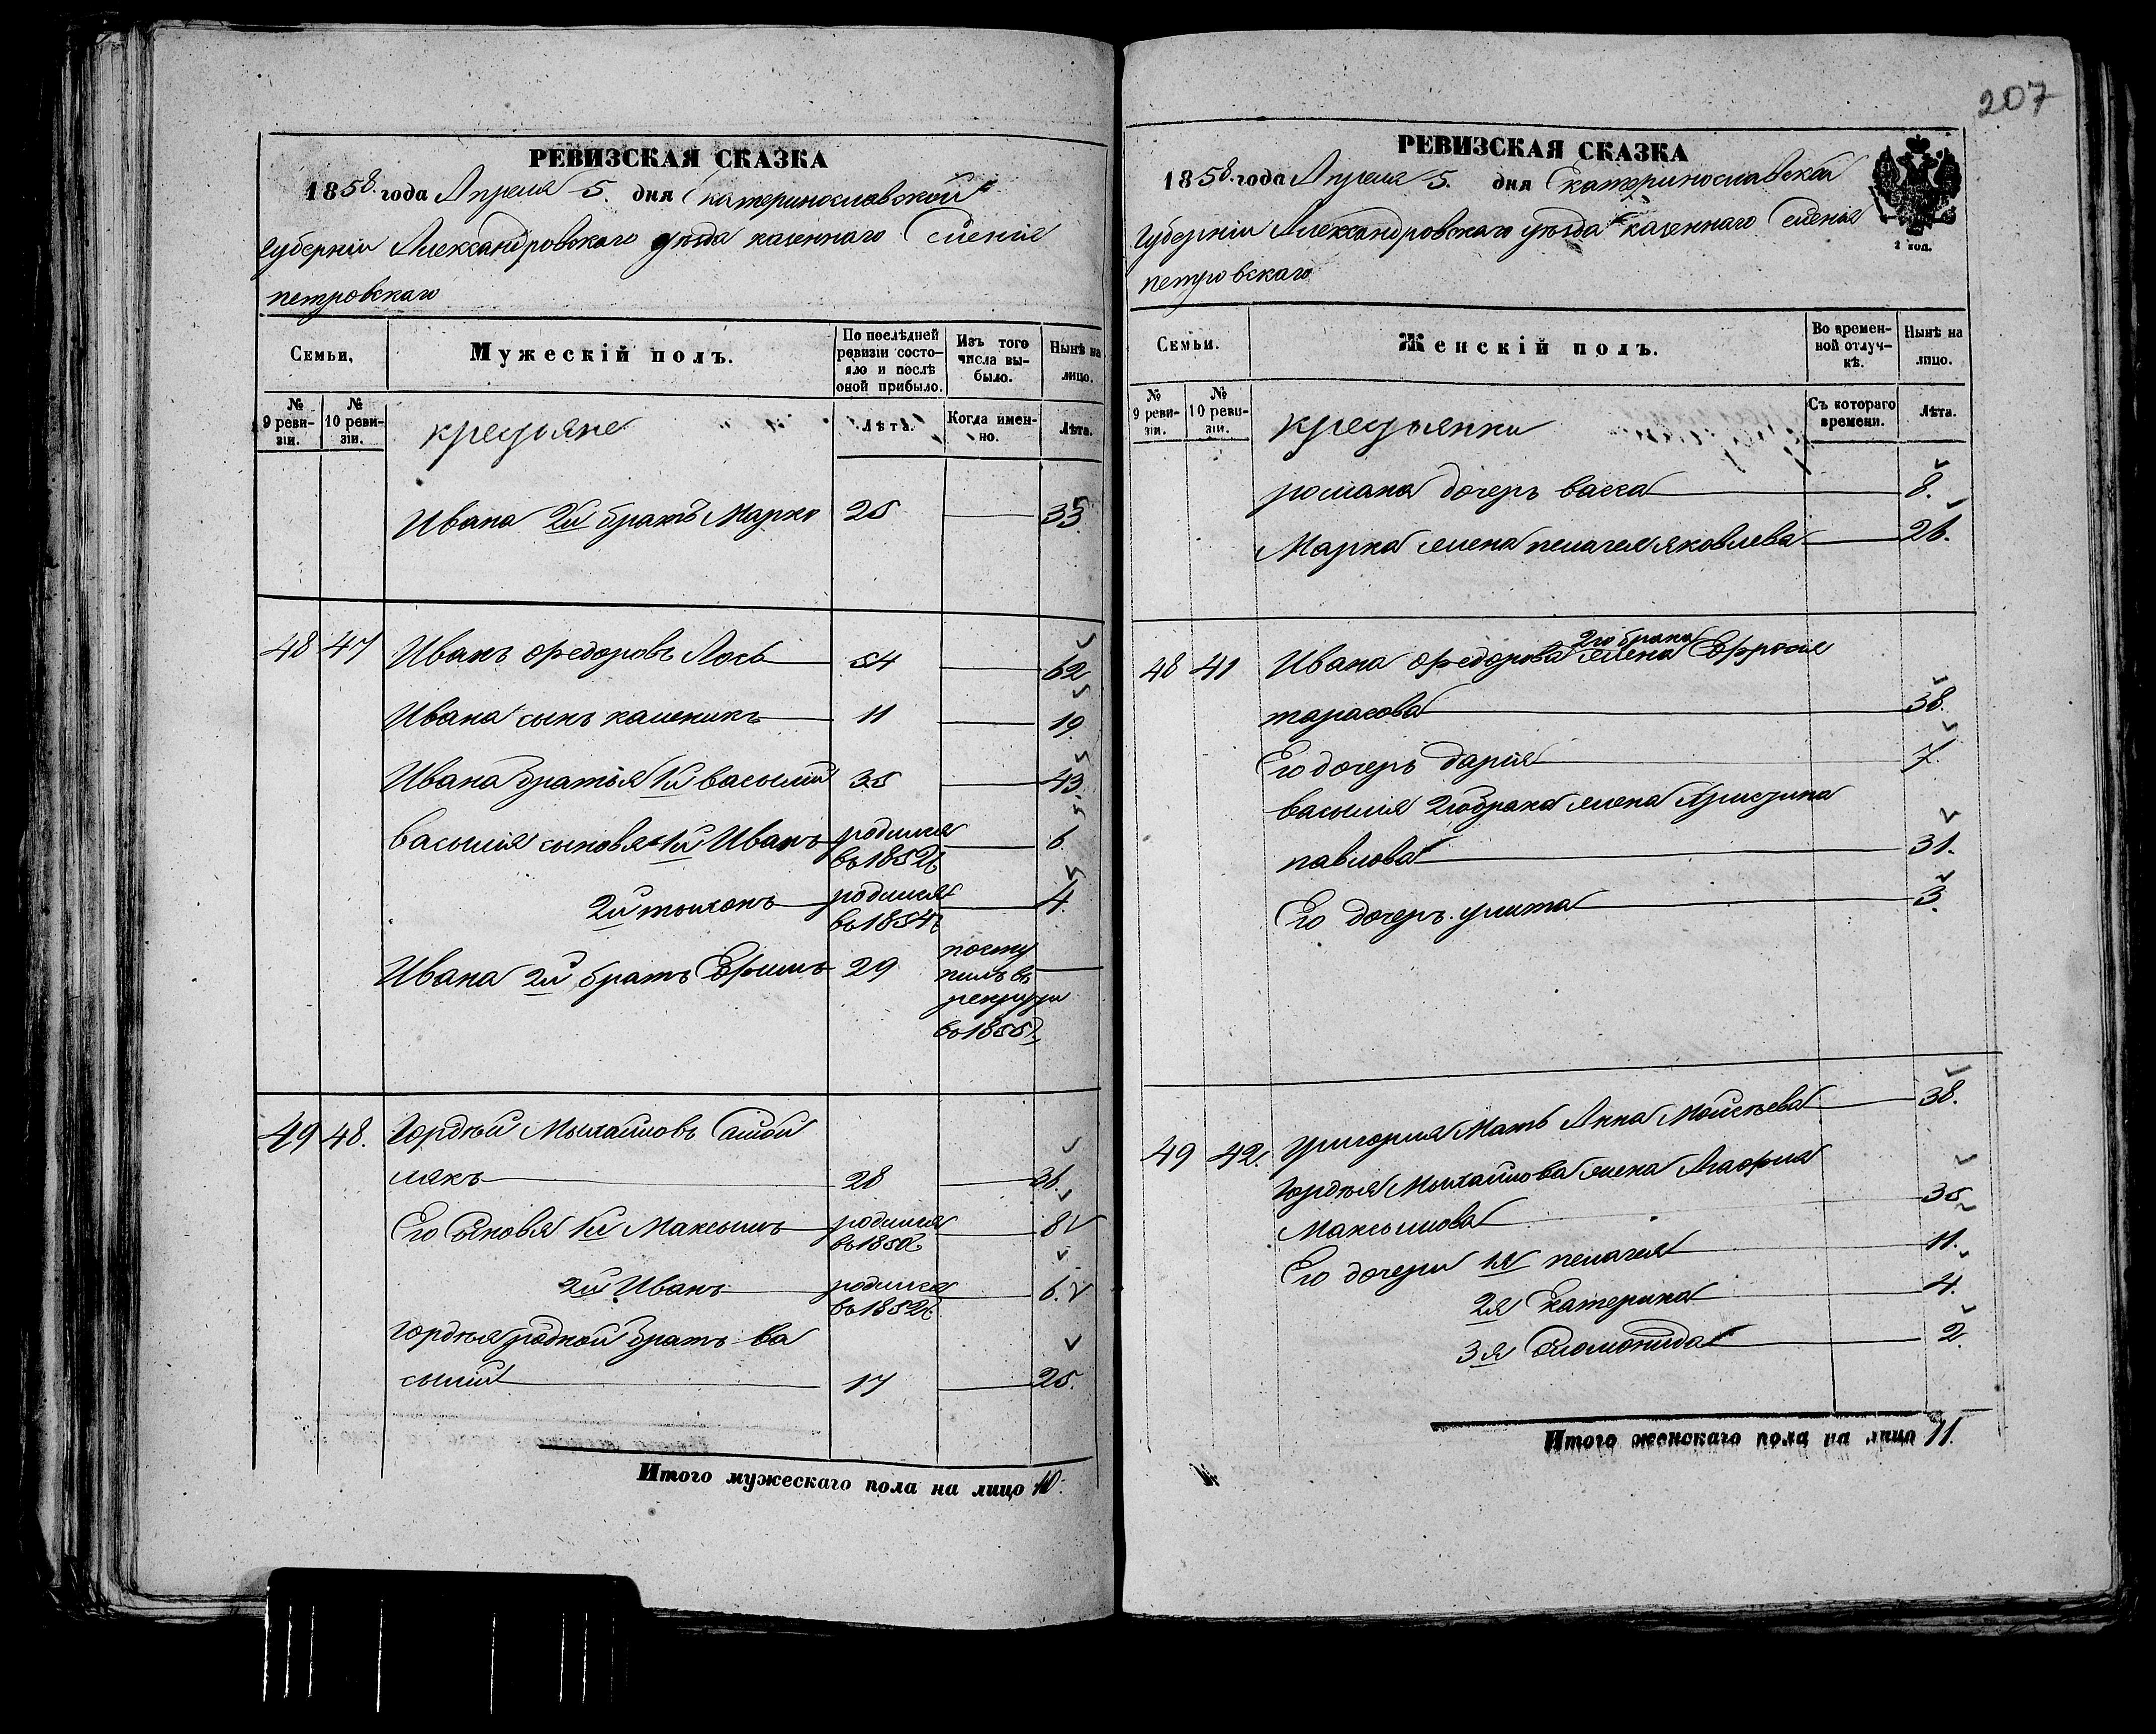 207
РЕВИЗСКАЯ СКАЗКА
1858 года Апреля 5. дня Екатеринославской
Губерніи Александровскаго уезда казеннаго Селенія
петровскаго
Семьи, Мужескій полъ. По послѣдней ревизіи состояло и послѣ оной прибыло. Изъ того числа выбыло. Нынѣ на лицо.
№ 9 ревизіи. № 10 ревизіи. крестьяне Лѣта. Когда именно. Лѣта.
Ивана 2й братъ Марко 25 33
48 47 Иванъ Федоровъ Лось 54 62
Ивана сынъ каленикъ 11 19
Ивана братья 1й васылій 35 43
васылия сыновя 1й Иванъ родился в 1852г. 6
2й тыхонъ родился в 1854г. 4.
Ивана 2й братъ Ефимъ 29 поступилъ въ рекруты в 1855г.
49 48. Гордѣй Мыхайловъ
лякъ 28 36.
Его Сыновя 1й Максымъ родился в 1850г. 8
2й Иванъ родился в 1852г. 6.
Гордѣя родной братъ ва
сылій 17 25.
Итого мужескаго пола на лицо 10.
РЕВИЗСКАЯ СКАЗКА
1858 года Апреля 5. дня Екатеринославской
2 коп.
Губерніи Александровскаго уѣзда казеннаго Селенія
петровскаго
Семьи. Женскій полъ. Во временной отлучкѣ. Нынѣ на лицо.
№ 9 ревизіи. № 10 ревизіи. крестьянки Съ котораго времени. Лѣта.
романа дочерь васса 8.
Марка жена пелагея яковлева 26.
48 41 Ивана Федорова 2го брака жена Ефросія
тарасова 38.
Его дочерь дарія 7.
васылия 2го брака жена Христина
павлова 31.
Его дочерь улита 3.
49 42. Григория Мать Анна Моисѣева 38.
Гордѣя Мыхайлова жена Агафия
Максымова 35
Его дочери 1я пелагея 11.
2я Екатерина 4.
3я Соломонида 2.
Итого женскаго пола на лицо 11.